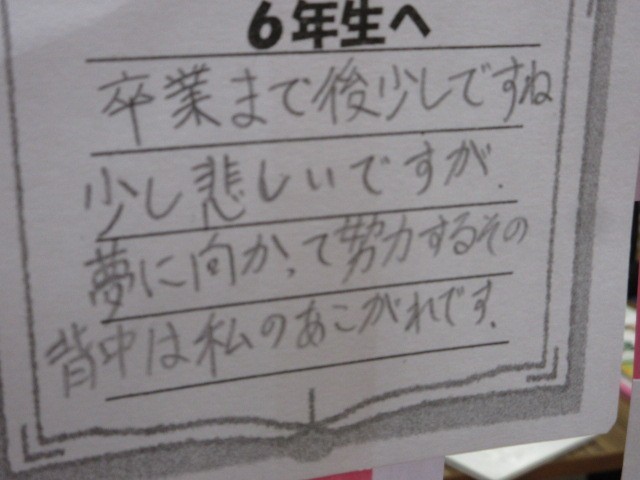 6年生へ
卒業まで後少しですね
少し悲しいですが、
夢に向かって努力するその
背中は私のあこがれです。